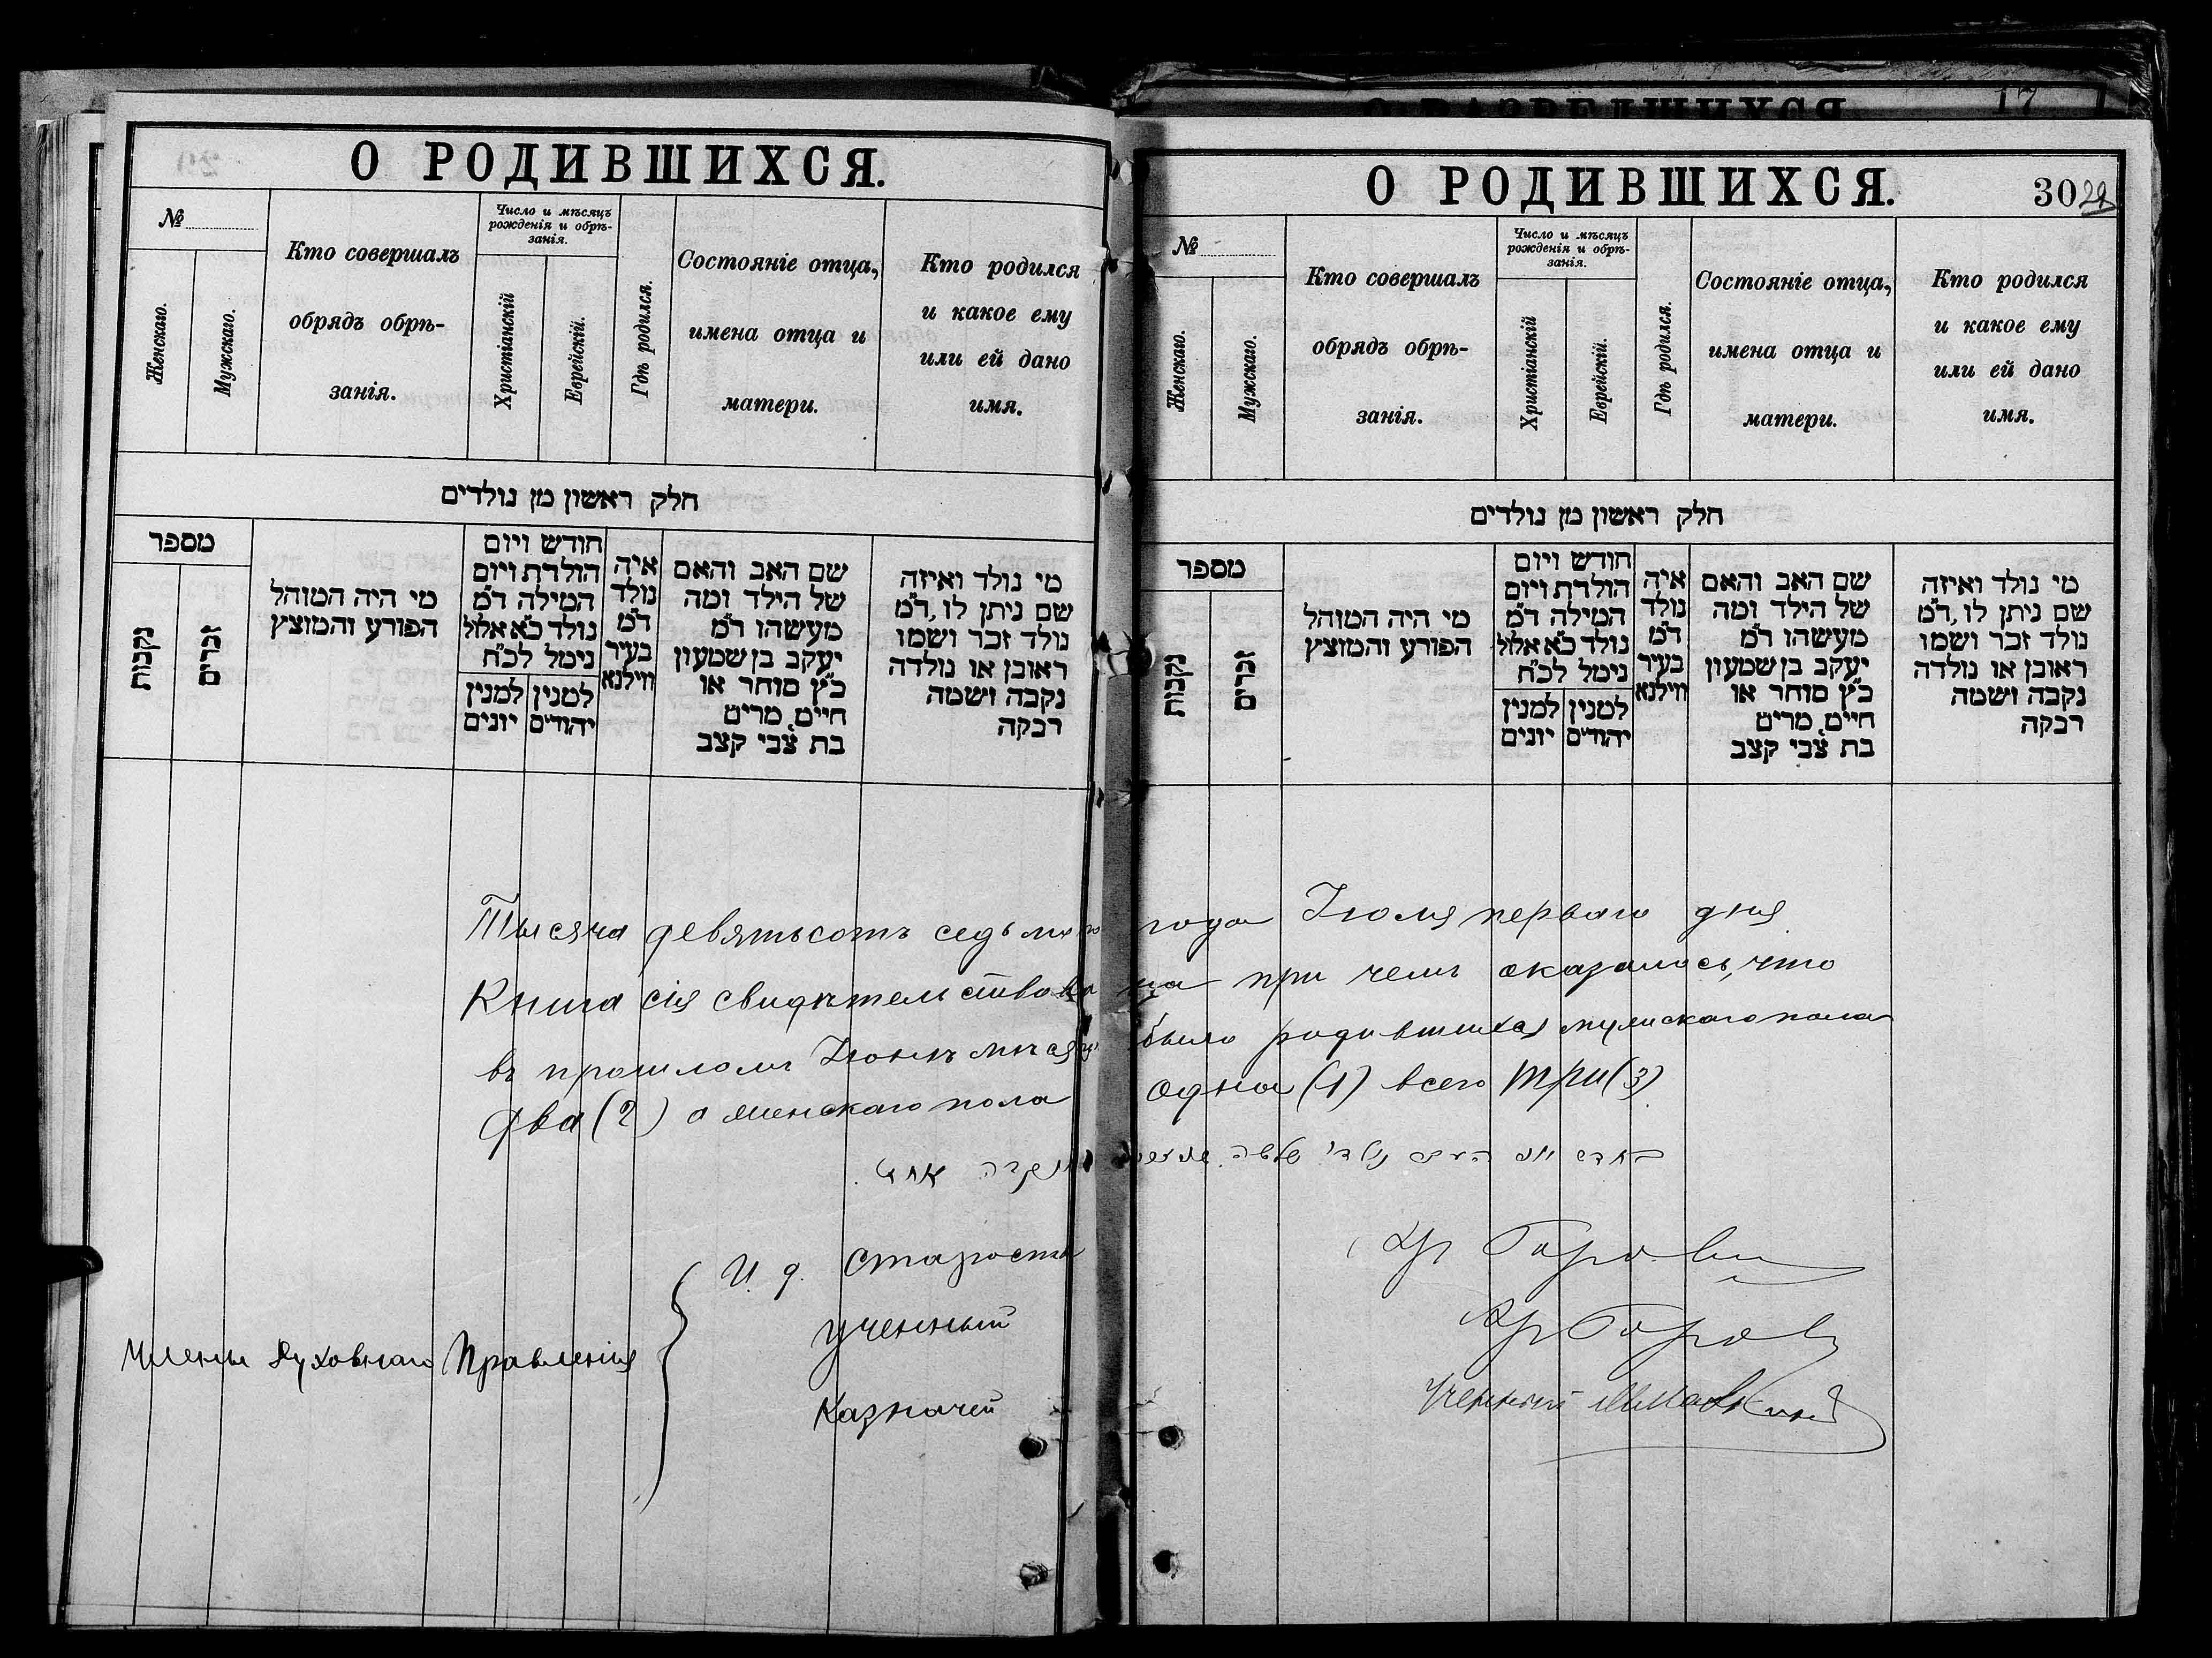 О РОДИВШИХСЯ.
№
Женскаго.
Мужскаго.
Кто совершалъ
обрядъ обрѣ-
занія.
Число и мѣсяцъ
рожденія и обрѣ-
занія.
Христіанскій
Еврейскій.
Гдѣ родился.
Состояніе отца,
имена отца и
матери.
Кто родился
и какое ему
или ей дано
имя.
חלק ראשון מן נולדים
מספר
נקבות
זכרים
מי היה המוהל
הפורע והמוצץ
חודש ויום
הולדת ויום
המילה ד״מ
נולד כ״א אלול
נימל לכ״ח
למנין יונים
למנין יהודים
איה
נולד
ד״מ
בעיר
ווילנא
שם האב והאם
של הילד ומה
מעשהו ד״מ
יעקב בן שמעון
כ״ץ סוחר או
חיים, מרים
בת צבי קצב
מי נולד ואיזה
שם ניתן לו, ד״מ
נולד זכר ושמו
ראובן או נולדה
נקבה ושמה
רבקה
О РОДИВШИХСЯ.
30 29
17
№
Женскаго.
Мужскаго.
Кто совершалъ
обрядъ обрѣ-
занія.
Число и мѣсяцъ
рожденія и обрѣ-
занія.
Христіанскій
Еврейскій.
Гдѣ родился.
Состояніе отца,
имена отца и
матери.
Кто родился
и какое ему
или ей дано
имя.
חלק ראשון מן נולדים
מספר
נקבות
זכרים
מי היה המוהל
הפורע והמוצץ
חודש ויום
הולדת ויום
המילה ד״מ
נולד כ״א אלול
נימל לכ״ח
למנין יונים
למנין יהודים
איה
נולד
ד״מ
בעיר
ווילנא
שם האב והאם
של הילד ומה
מעשהו ד״מ
יעקב בן שמעון
כ״ץ סוחר או
חיים, מרים
בת צבי קצב
מי נולד ואיזה
שם ניתן לו, ד״מ
נולד זכר ושמו
ראובן או נולדה
נקבה ושמה
רבקה
Тысяча девятьсотъ седьмого года Іюля перваго дня
Книга сія свидѣтельствована при чемъ оказалось, что
въ прошломъ Іюнѣ мѣсяцѣ было родившихся мужскаго пола
Два (2) а женскаго пола одна (1) всего три (3)
Члены Духовнаго Правленія
И. д. Староста
Ученный
Казначей
Ученный